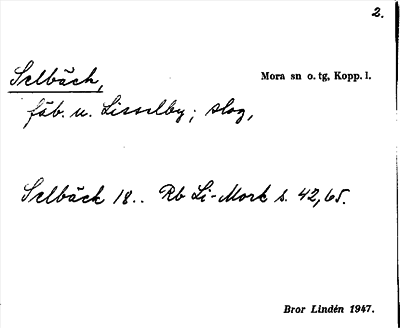 2.
Selbäck,
Mora sn o. tg, Kopp. l.
fäb. u. Lisselby; skog,
Selbäck 18.. Rb Li-Mork s. 42, 65.
Bror Lindén 1947.